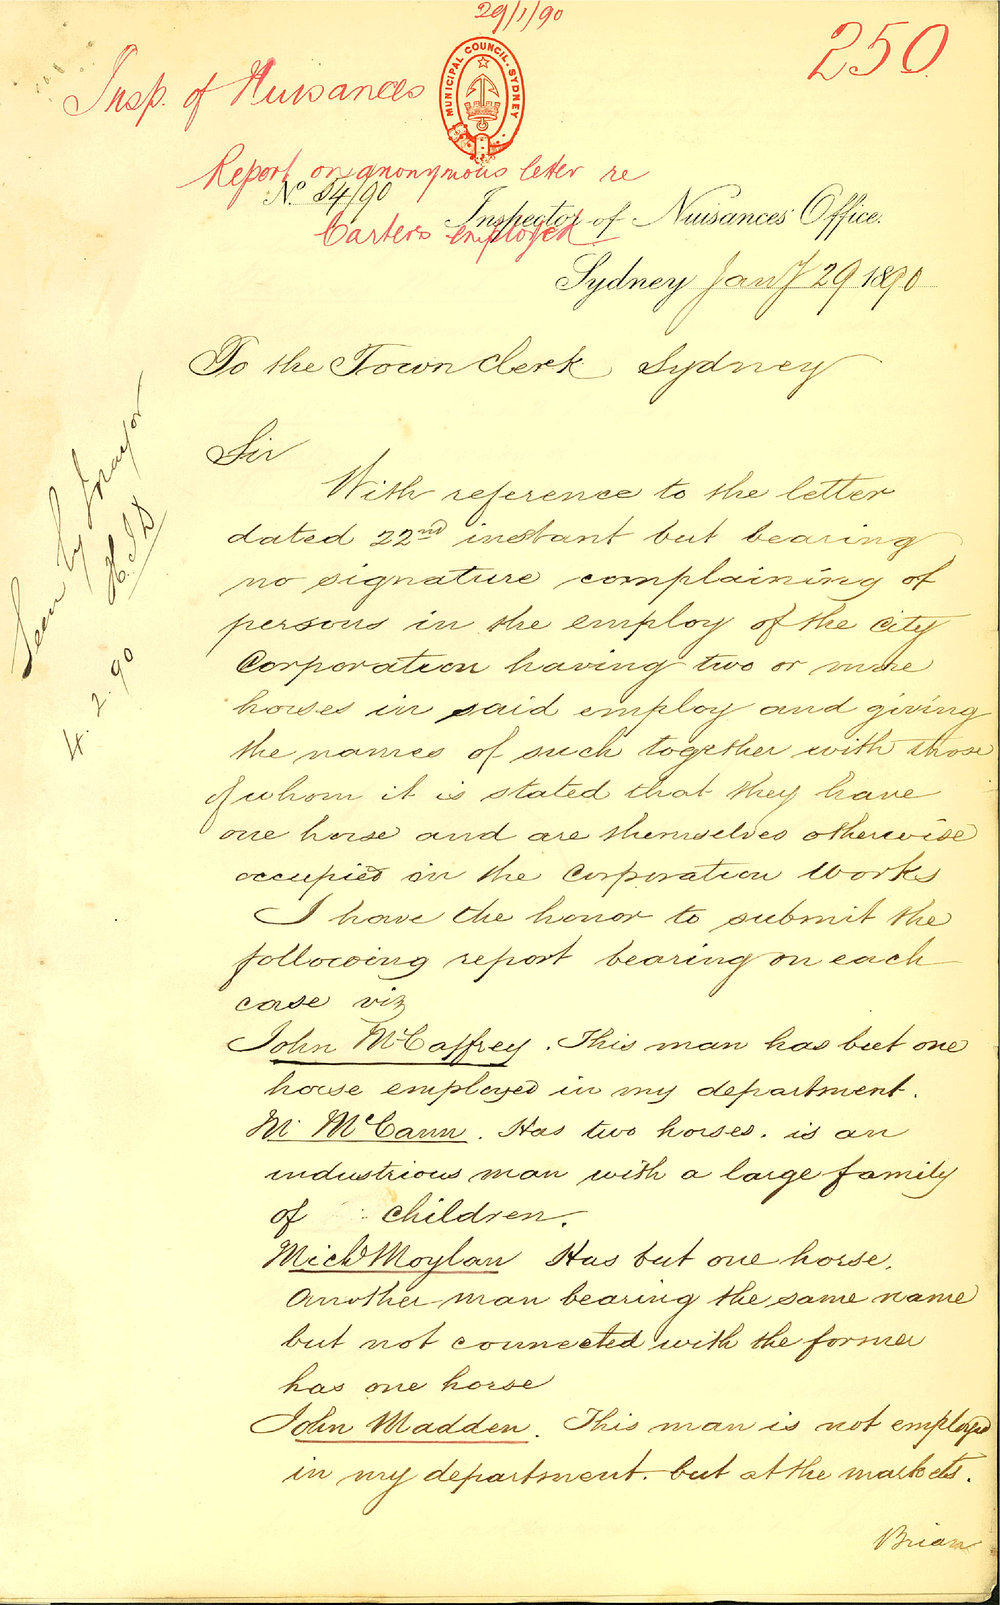 29/1/90
250
Insp. of Nuisances
MUNICIPAL COUNCIL. SYDNEY
Report on anonymous letter re
Carters employed
No. 54/90
Inspector of Nuisances' Office.
Sydney Jany 29 1890
To the Town Clerk Sydney
Seen by Mayor
4. 2. 90
Sir
With reference to the letter
dated 22nd instant but bearing
no signature complaining of
persons in the employ of the City
Corporation having two or more
horses in said employ and giving
the names of such together with those
of whom it is stated that they have
one horse and are themselves otherwise
occupied in the Corporation Works
I have the honor to submit the
following report bearing on each
case viz
John McCaffrey. This man has but one
horse employed in my department.
M. McCann. Has two horses. is an
industrious man with a large family
of children.
Michl Moylan Has but one horse.
Another man bearing the same name
but not connected with the former
has one horse
John Madden. This man is not employed
in my department. but at the markets.
Brian